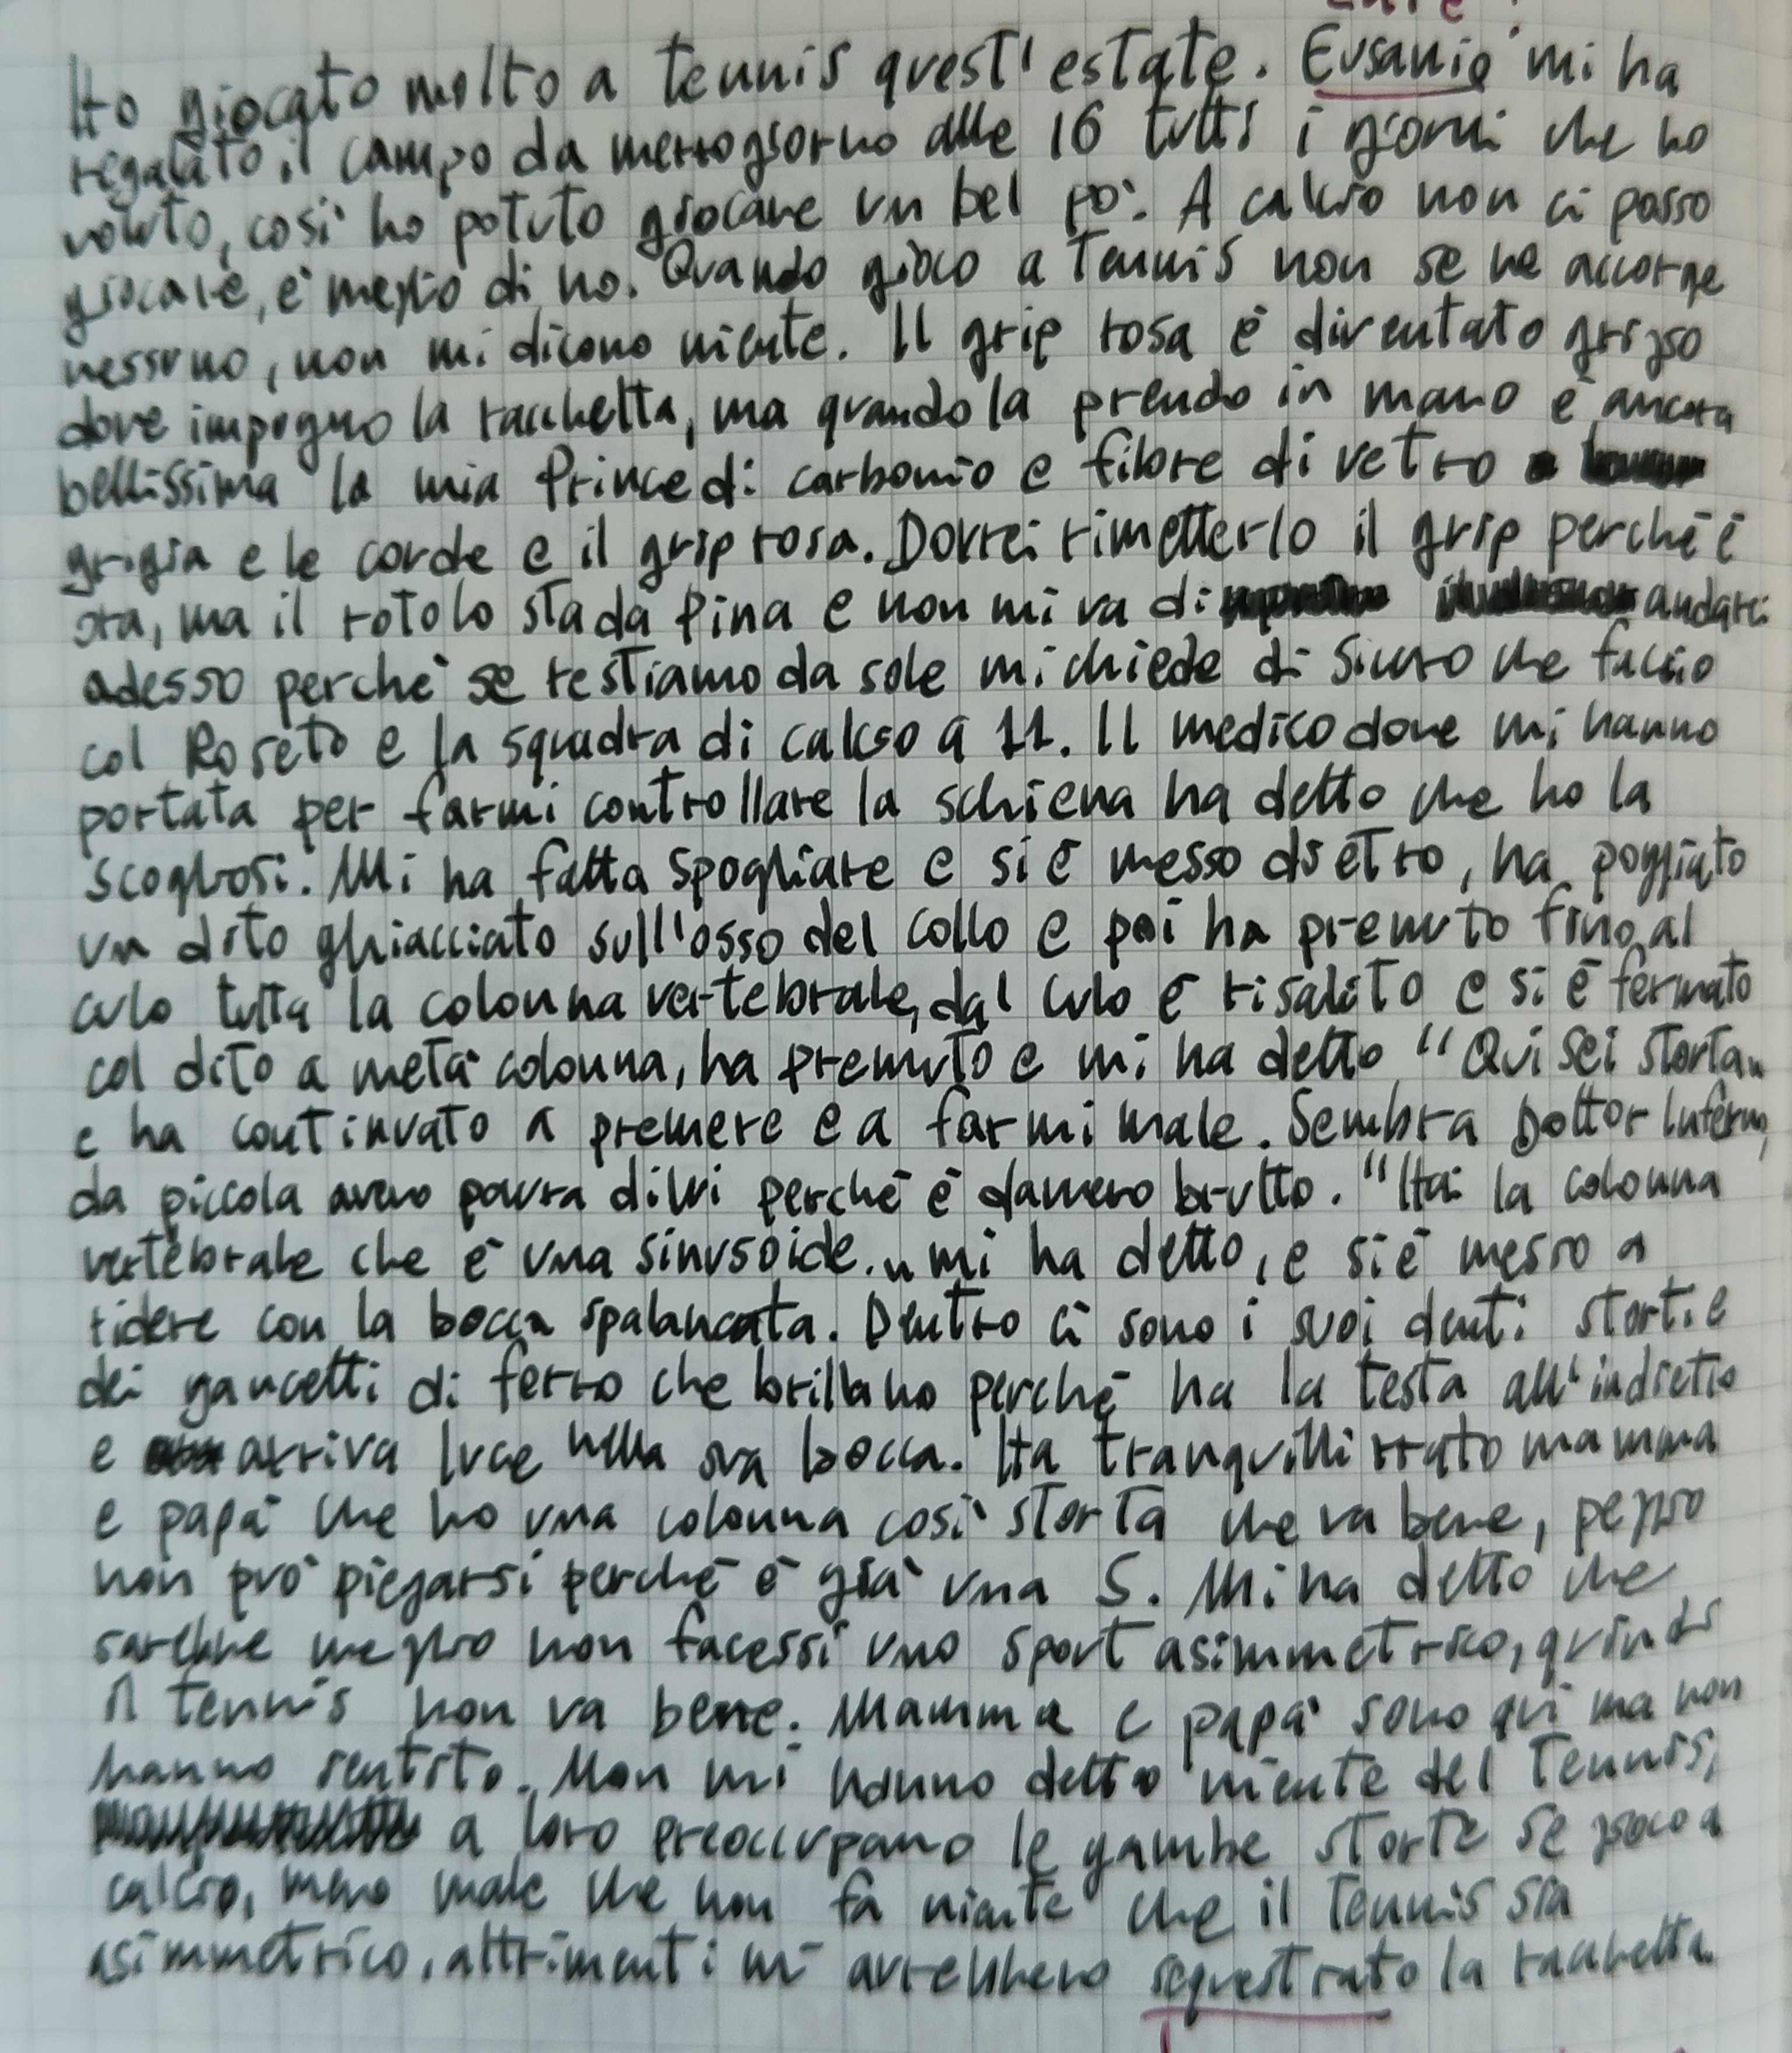 Ho giocato molto a tennis quest'estate. Eusanio mi ha
regalato il campo da mezzogiorno alle 16 tutti i giorni che ho
voluto, così ho potuto giocare un bel po'. A calcio non ci posso
giocare, è meglio di no. Quando gioco a Tennis non se ne accorge
nessuno, non mi dicono niente. Il grip rosa è diventato grigio
dove impugno la racchetta, ma quando la prendo in mano è ancora
bellissima la mia Prince di carbonio e fibre di vetro
grigia e le corde e il grip rosa. Dovrei rimetterlo il grip perché è
ora, ma il rotolo sta da Pina e non mi va di andarci
adesso perché se restiamo da sole mi chiede di sicuro che faccio
col Roseto e la squadra di calcio a 11. Il medico dove mi hanno
portata per farmi controllare la schiena ha detto che ho la
scogliosi. Mi ha fatta spogliare e si è messo dietro, ha poggiato
un dito ghiacciato sull'osso del collo e poi ha premuto fino al
culo tutta la colonna vertebrale, dal culo è risalito e si è fermato
col dito a metà colonna, ha premuto e mi ha detto "Qui sei storta"
e ha continuato a premere e a farmi male. Sembra Dottor Inferno,
da piccola avevo paura di lui perché è davvero brutto. "Hai la colonna
vertebrale che è una sinusoide." mi ha detto, e si è messo a
ridere con la bocca spalancata. Dentro ci sono i suoi denti storti e
dei gancetti di ferro che brillano perché ha la testa all'indietro
e arriva luce nella sua bocca. Ha tranquillizzato mamma
e papà che ho una colonna così storta che va bene, peggio
non può piegarsi perché è già una S. Mi ha detto che
sarebbe meglio non facessi uno sport asimmetrico, quindi
il tennis non va bene. Mamma e papà sono qui ma non
hanno sentito. Non mi hanno detto niente del Tennis,
a loro preoccupano le gambe storte se gioco a
calcio, meno male che non fa niente che il Tennis sia
asimmetrico, altrimenti mi avrebbero sequestrato la racchetta.